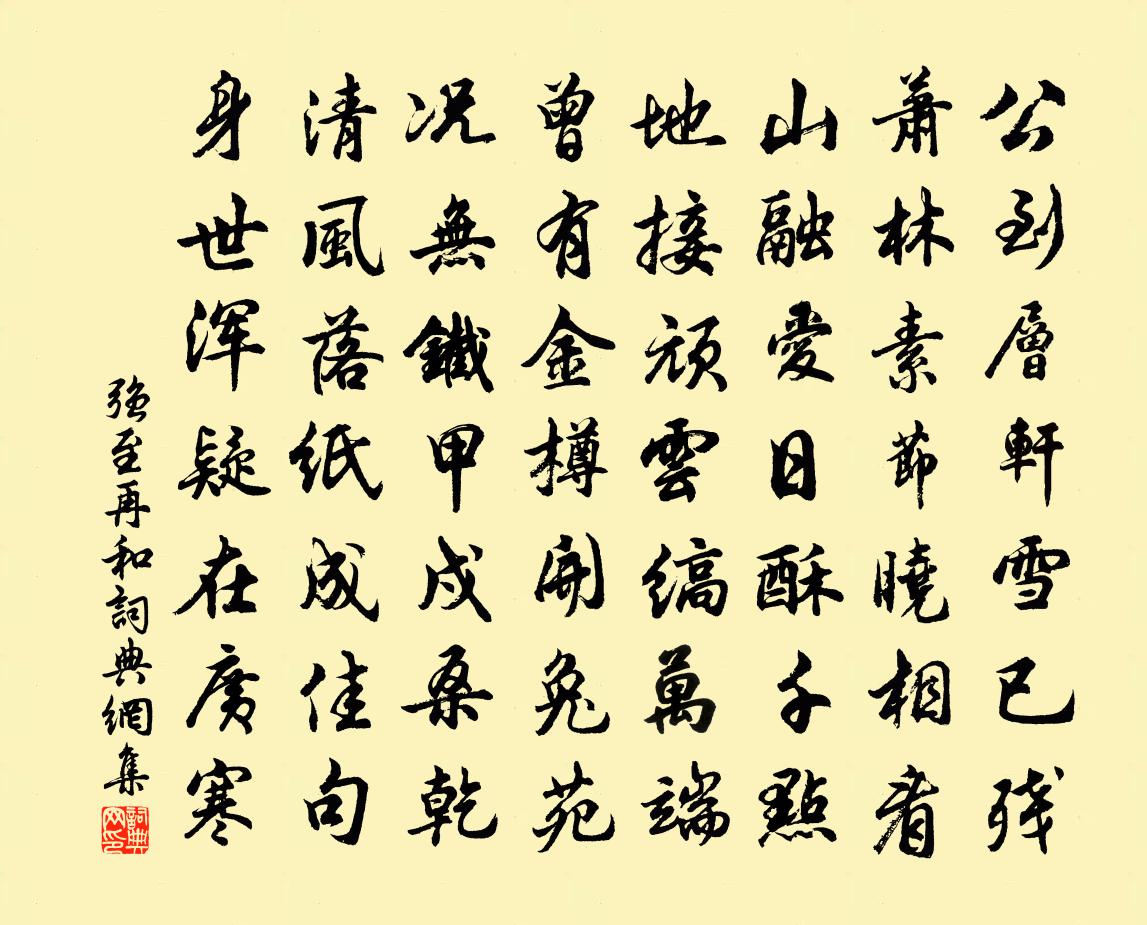 公到層軒雪已残
蕭林素節曉相看
山融愛日酥千點
地接頑雲縞萬端
曾有金樽開兔苑
况無鐵甲戍桑乾
清風落紙成佳句
身世渾疑在廣寒
强至再和詞典網集
詞典网印